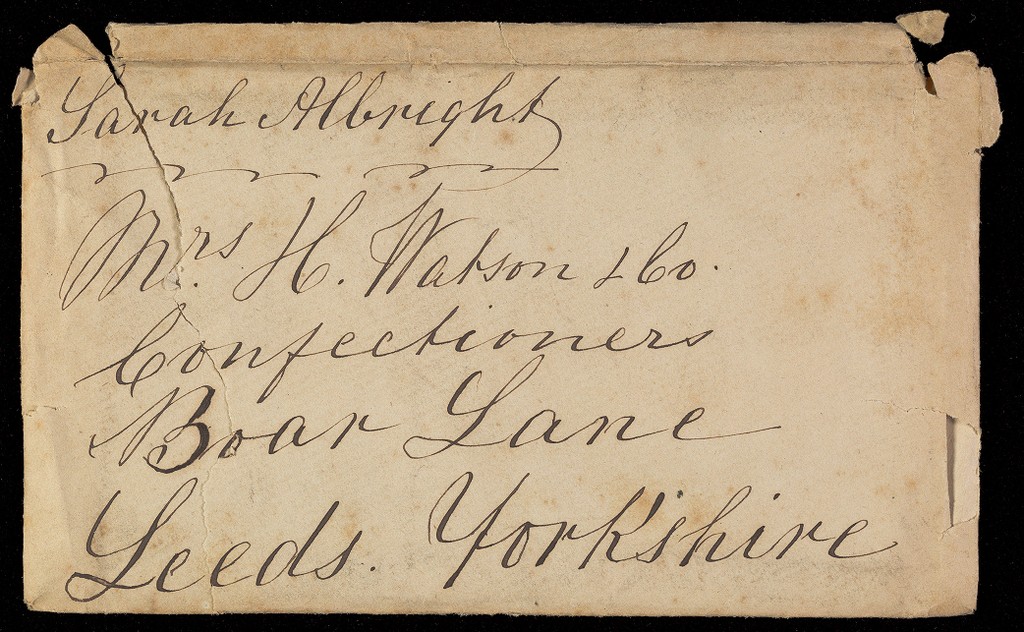 Sarah Albright
Mrs. H. Watson & Co.
Confectioners
Boar Lane
Leeds. Yorkshire